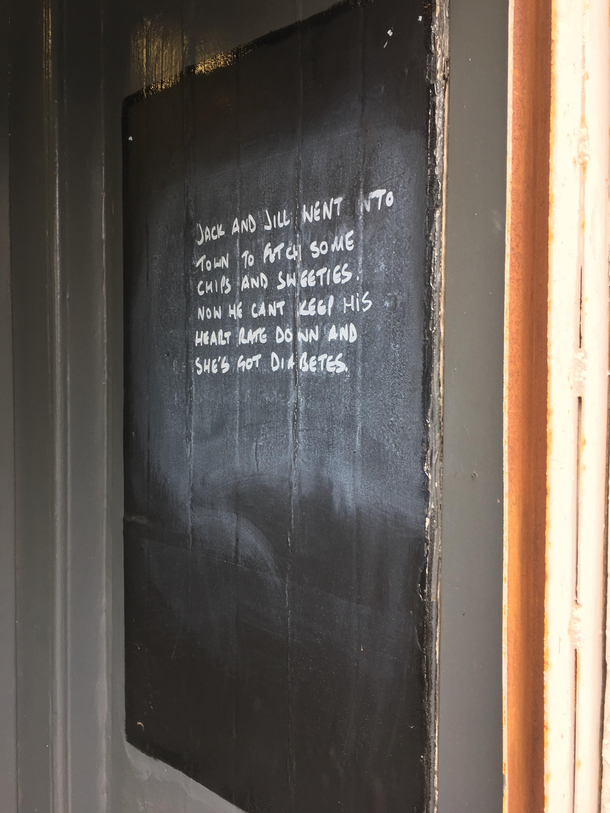 JACK AND JILL WENT INTO
TOWN TO FETCH SOME
CHIPS AND SWEETIES.
NOW HE CANT KEEP HIS
HEART RATE DOWN AND
SHE'S GOT DIABETES.